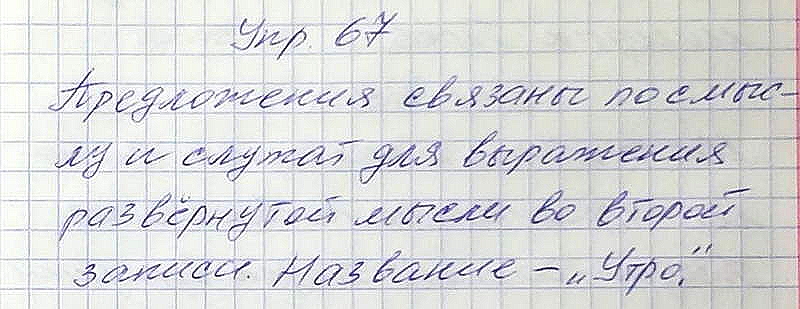 Упр. 67
Предложения связаны по смыс-
лу и служат для выражения
развёрнутой мысли во второй
записи. Название – „Утро."